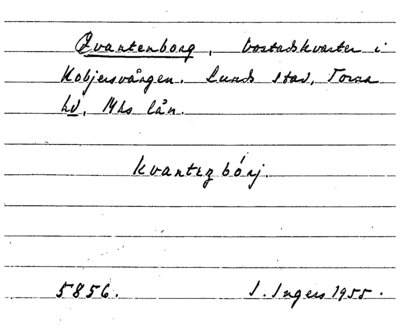 Qvantenborg, bostadskvarter i
Kobjersvången. Lunds stad, Torna
hd, Mhs län.
kvantɛƶbórj.
5856.
I. Ingers 1955.